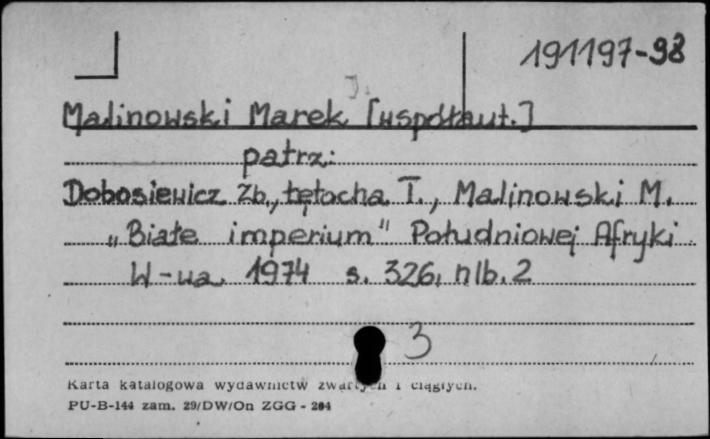 191197-98
J.
Malinowski Marek [współaut.]
patrz:
Dobosiewicz Zb., Łętocha T., Malinowski M.
„Białe imperium" Południowej Afryki.
W-wa 1974 s. 326, nlb. 2
3
Karta katalogowa wydawnictw zwartych i ciągłych.
PU-B-144 zam. 29/DW/On ZGG - 204